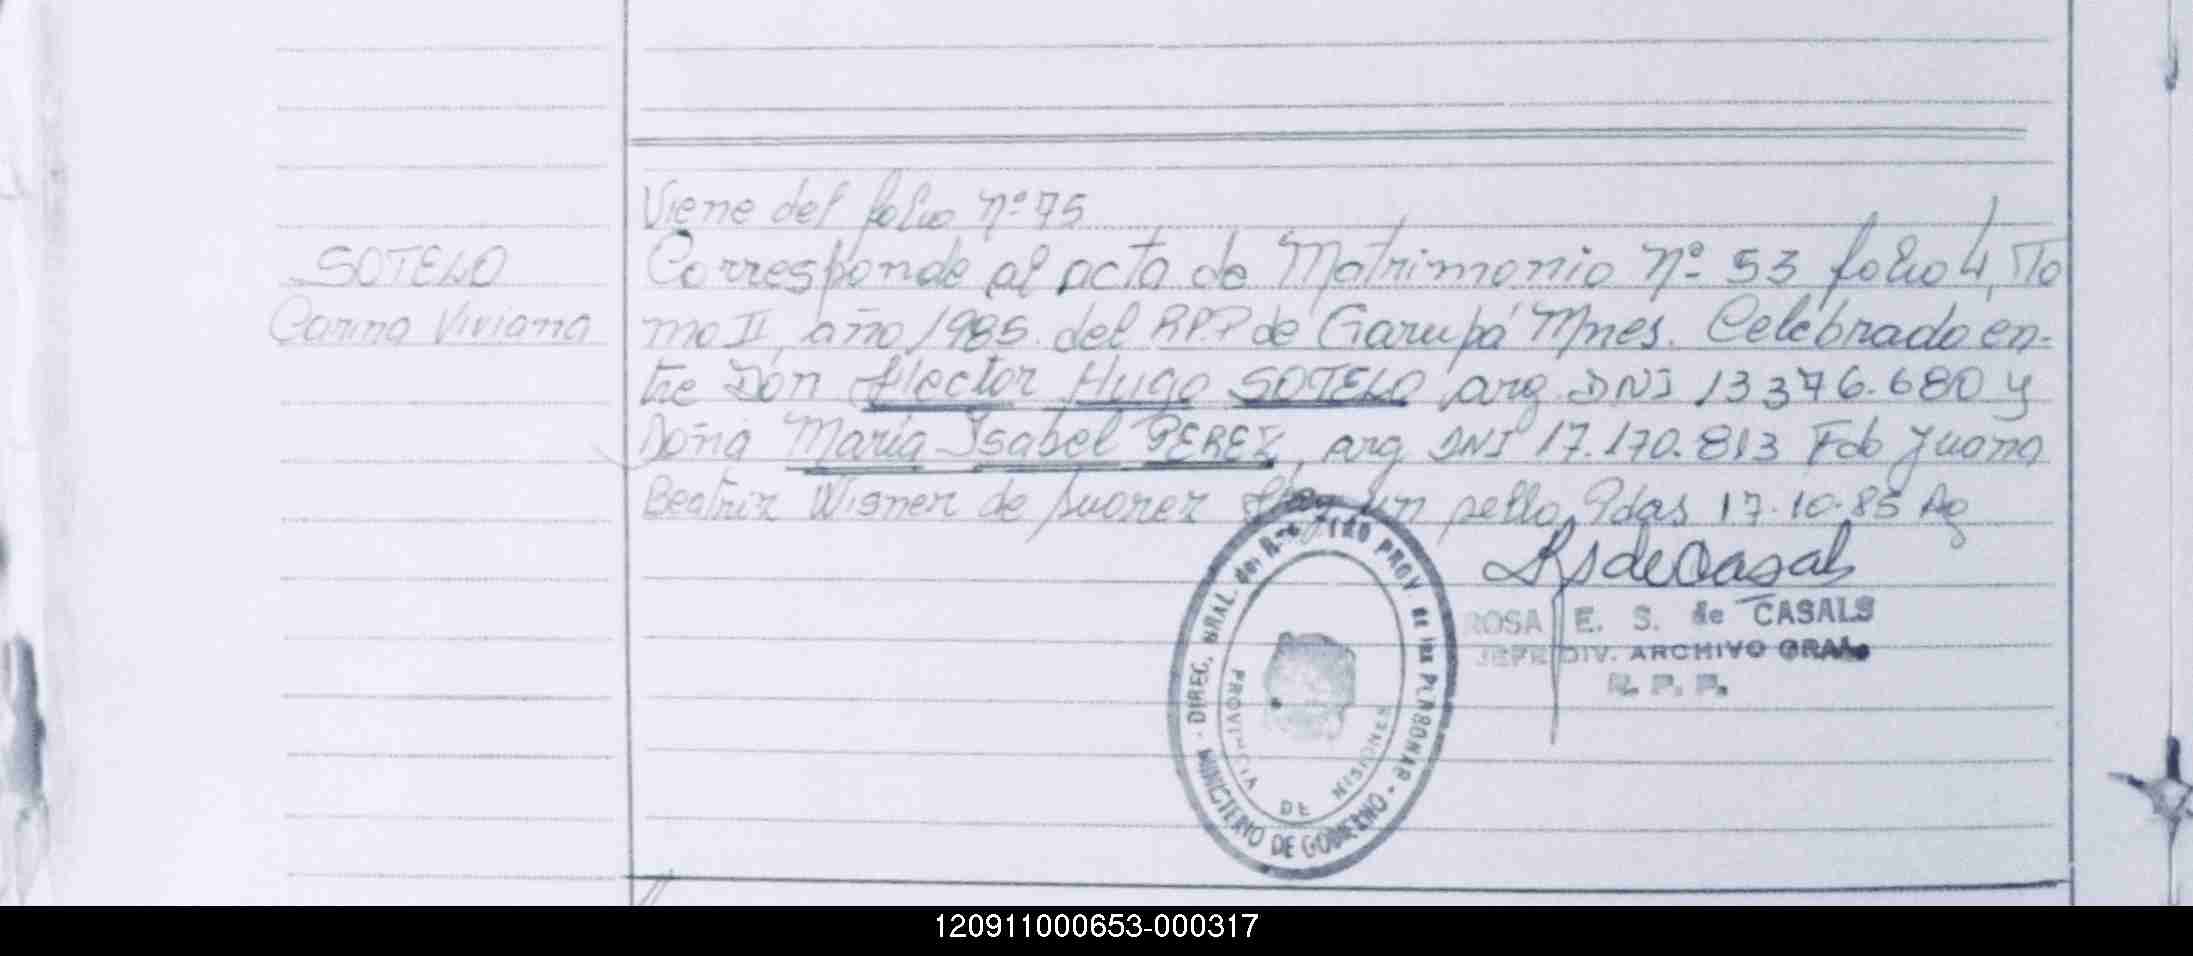 Viene del folio Nº 75
SOTELO
Carina Viviana
Corresponde al acta de Matrimonio Nº 53 folio 4, To
mo II, año 1985 del RPP de Garupá Mnes. Celebrado en-
tre Don Hector Hugo SOTELO arg DNI 13376.680 y
Doña María Isabel PEREZ, arg DNI 17.170.813 Fdo Juana
Beatriz Wisner de Suarez Hay un sello Pdas 17.10.85
ROSA E. S. de CASALS
JEFE DIV. ARCHIVO GRAL.
R. P. P.
DIREC. GRAL. del REGISTRO PROV. de las PERSONAS - MINISTERIO DE GOBIERNO -
PROVINCIA DE MISIONES
120911000653-000317